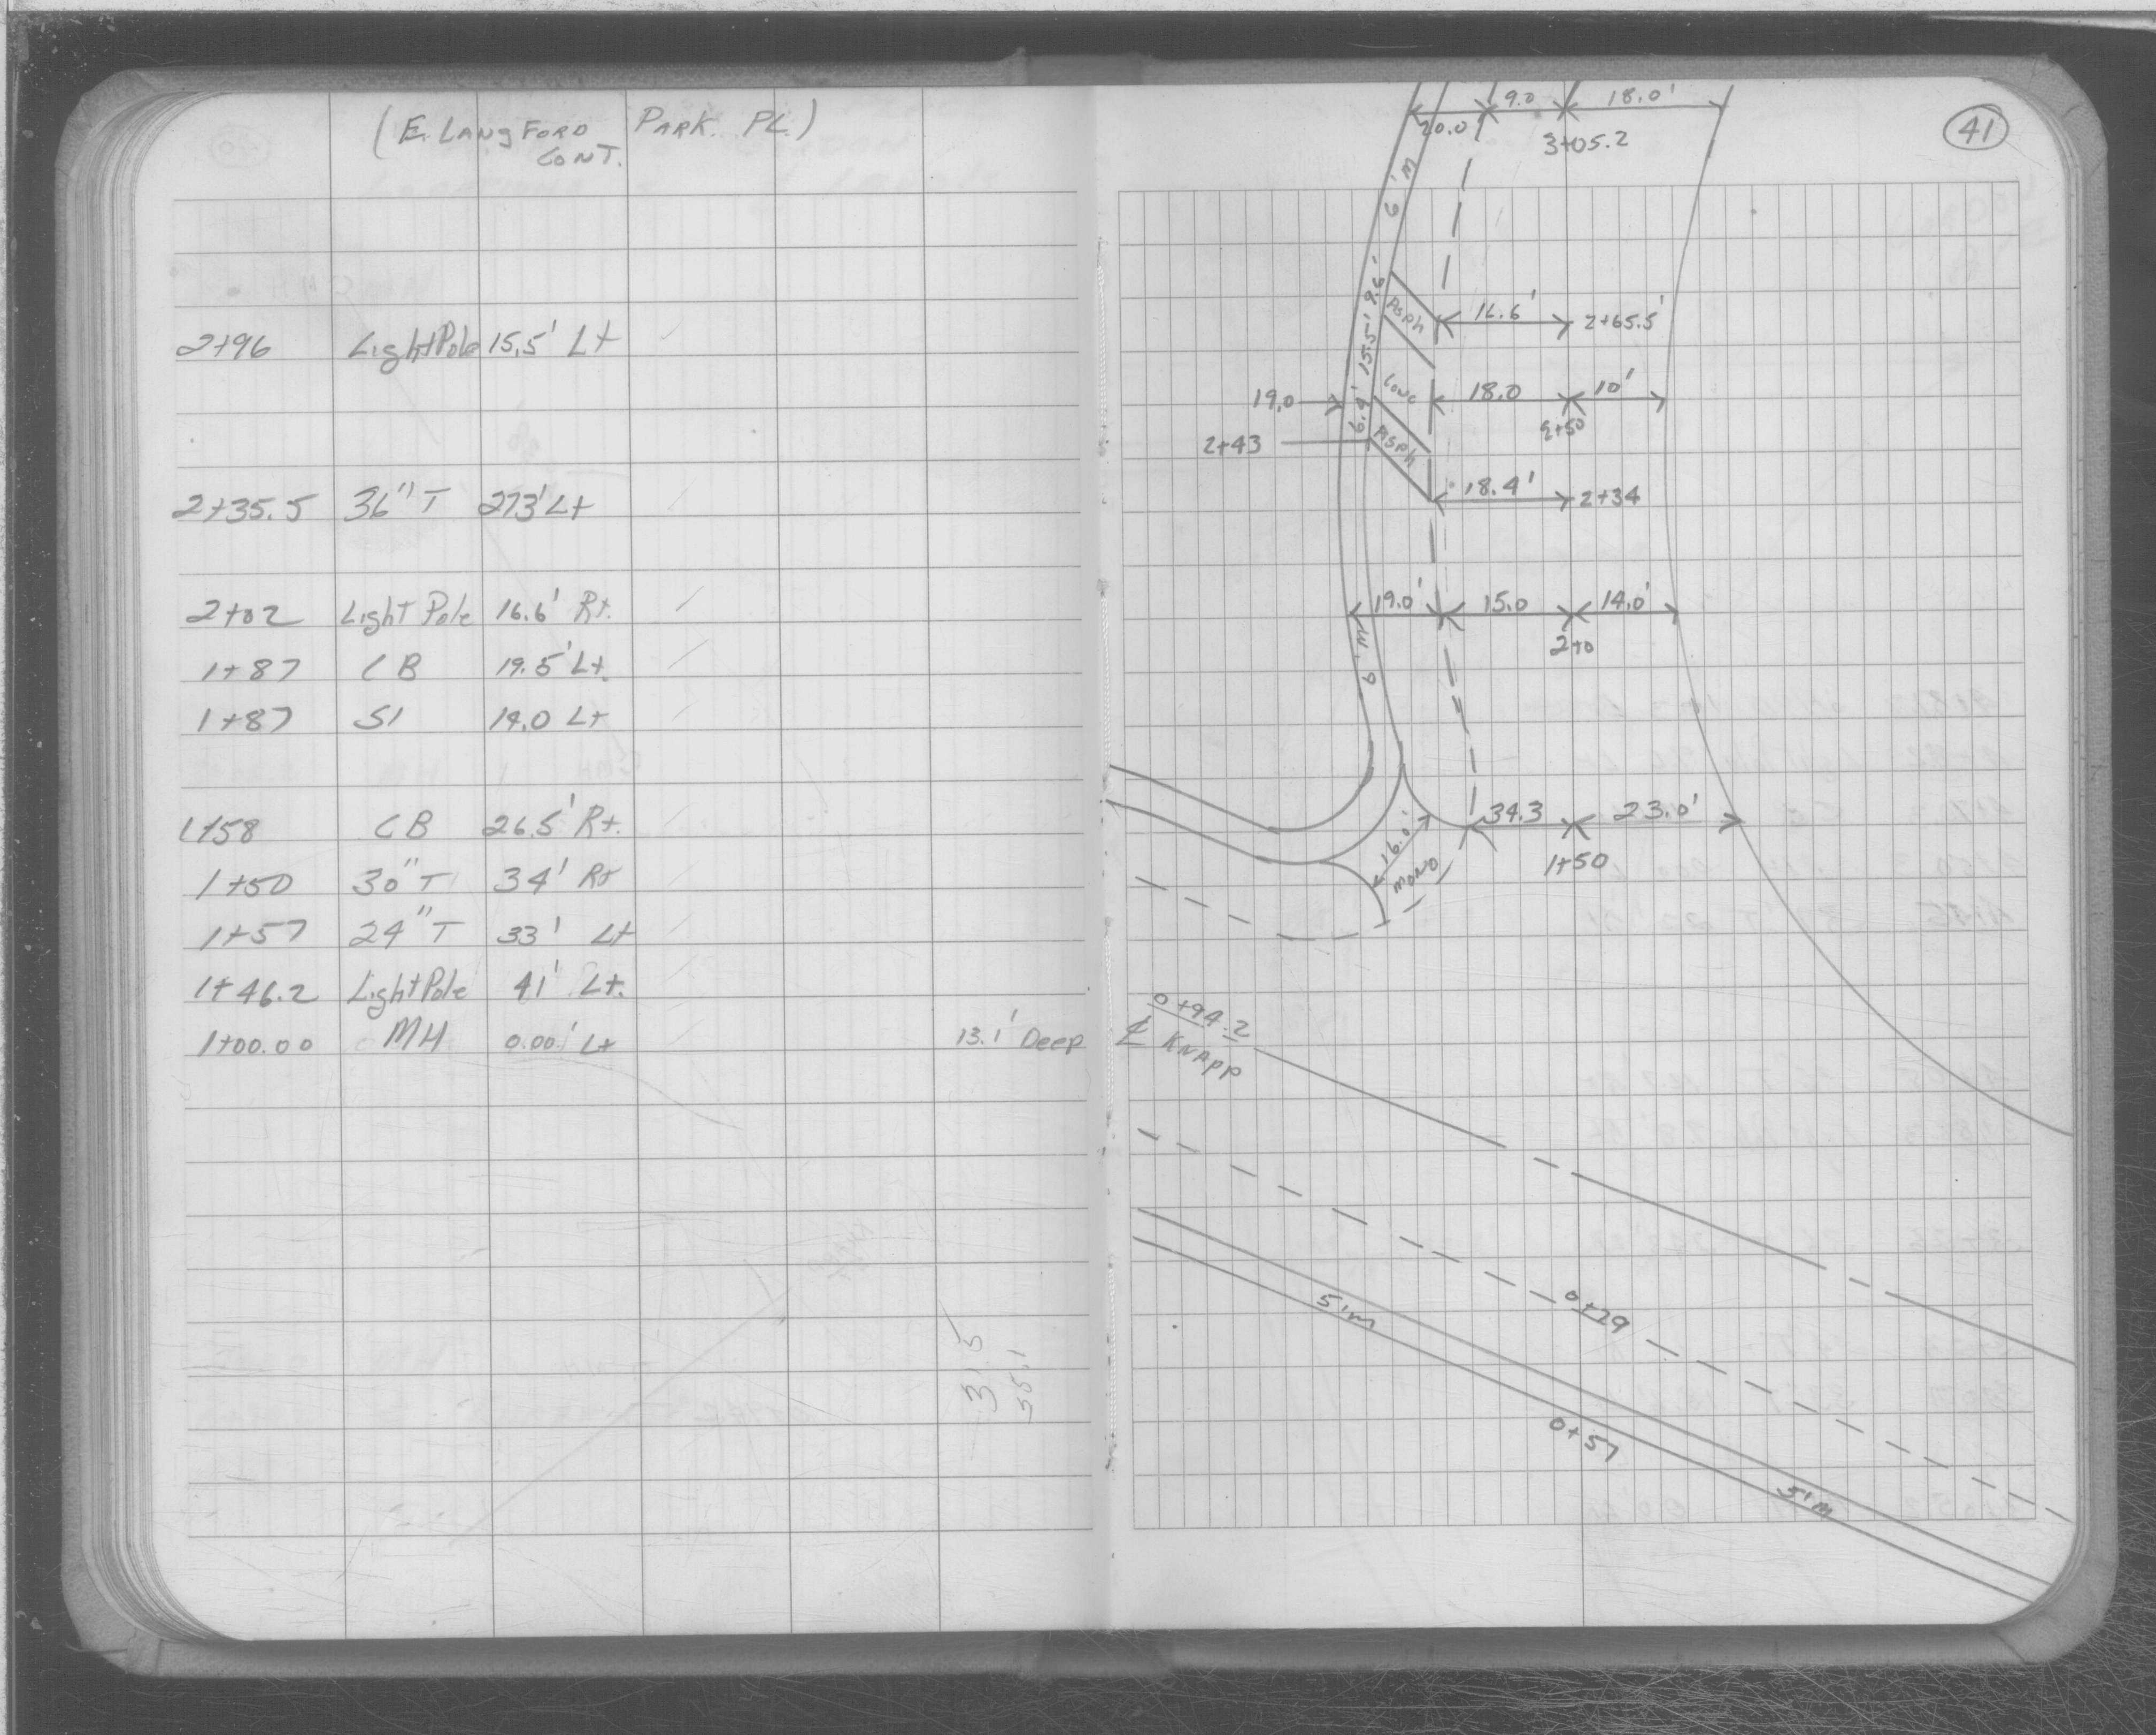 (E. LANGFORD PARK. PL.)
CONT.
2+96 Light Pole 15.5' Lt
2+35.5 36" T 273' Lt
2+02 Light Pole 16.6' Rt.
1+87 CB 19.5' Lt.
1+87 SI 14.0 Lt
1+58 CB 26.5' Rt.
1+50 30" T 34' Rt
1+57 24" T 33' Lt
1+46.2 Light Pole 41' Lt.
1+00.00 MH 0.00' Lt 13.1' Deep
31.5
35.1
41
20.0' 9.0 18.0'
3+05.2
6'M
9.6' Asph 16.6' 2+65.5'
15.5' Conc
19.0 18.0 10'
2+50
6.4' Asph
2+43
18.4' 2+34
19.0' 15.0 14.0'
2+0
6'M
34.3 23.0'
1+50
16.0'
MONO
0+94.2
℄ KNAPP
0+29
5'M
0+57
5'M